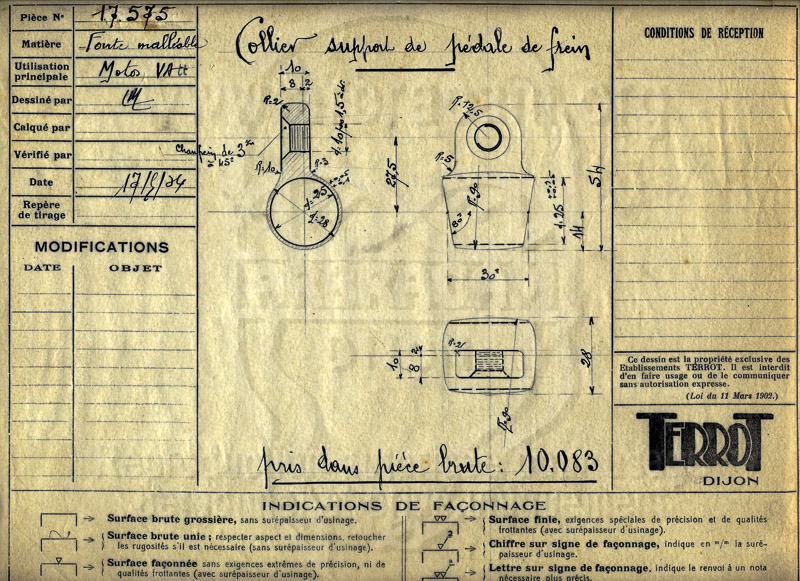 Pièce N° 17.575
Matière Fonte malléable
Utilisation principale Motos VA
Dessiné par
Calqué par
Vérifié par
Date
Repère de tirage
MODIFICATIONS
DATE OBJET
Collier support de pédale de frein
10
8 2
R=2
Chanfrein de 3
à 45°
R=10
R=3
d=28
27,5
R=12,5
R=5
80°
R=90
54
14
30
R=2
10
8 2
28
R=90
pris dans pièce brute: 10.083
CONDITIONS DE RÉCEPTION
Ce dessin est la propriété exclusive des
Etablissements TERROT. Il est interdit
d'en faire usage ou de le communiquer
sans autorisation expresse.
(Loi du 11 Mars 1902.)
TERROT
DIJON
INDICATIONS DE FAÇONNAGE
Surface brute grossière, sans surépaisseur d'usinage.
Surface brute unie; respecter aspect et dimensions, retoucher
les rugosités s'il est nécessaire (sans surépaisseur d'usinage).
Surface façonnée sans exigences extrêmes de précision, ni de
qualités frottantes (avec surépaisseur d'usinage).
Surface finie, exigences spéciales de précision et de qualités
frottantes (avec surépaisseur d'usinage).
2
Chiffre sur signe de façonnage, indique en m/m la suré-
paisseur d'usinage.
Lettre sur signe de façonnage, indique le renvoi à un nota
nécessaire plus précis.